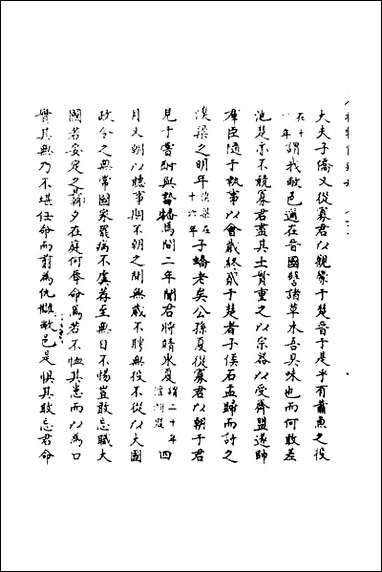 大夫子僑又從寡君以觀釁于楚晉于是乎有蕭魚之役
在十一年謂我敝邑邇在晉國譬諸草木吾臭味也而何敢差
池楚亦不競寡君盡其土實重之以宗器以受齊盟遂帥
羣臣隨于執事以會歲終貳于楚者子侯石盂歸而討之
湨梁之明年湨梁在十六年子蟜老矣公孫夏從寡君以朝于君
見于嘗酎與執燔焉間二年聞君將靖東夏謂二十年澶淵盟四
月又朝以聽事期不朝之間無歲不聘無役不從以大國
政令之無常國家罷病不虞荐至無日不惕豈敢忘職大
國若安定之其朝夕在庭何辱命焉若不恤其患而以為口
實其無乃不堪任命而翦為仇讎敝邑是懼其敢忘君命